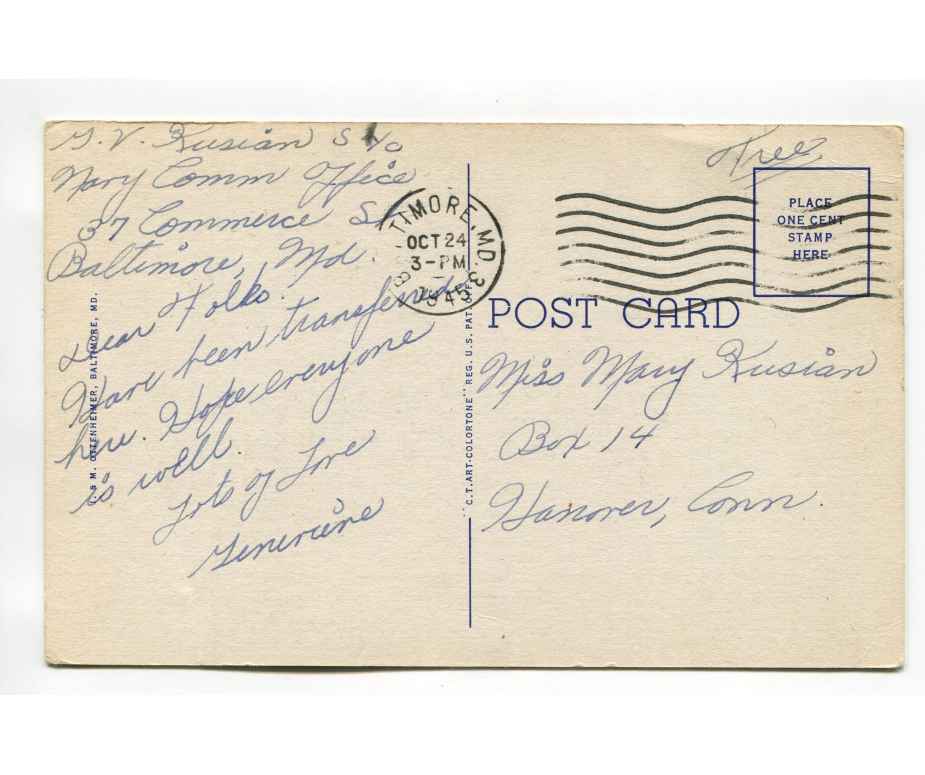 G. V. Kusian S
Navy Comm Office
37 Commerce St
Baltimore, Md.
Dear Folks.
Have been transferred
here. Hope everyone
is well.
Lots of Love
Genevieve
M. OTTENHEIMER, BALTIMORE, MD.
"C.T.ART-COLORTONE" REG. U.S. PAT. OFF.
BALTIMORE, MD.
OCT 24
3-PM
1945
Free
PLACE
ONE CENT
STAMP
HERE
POST CARD
Miss Mary Kusian
Box 14
Hanover, Conn.